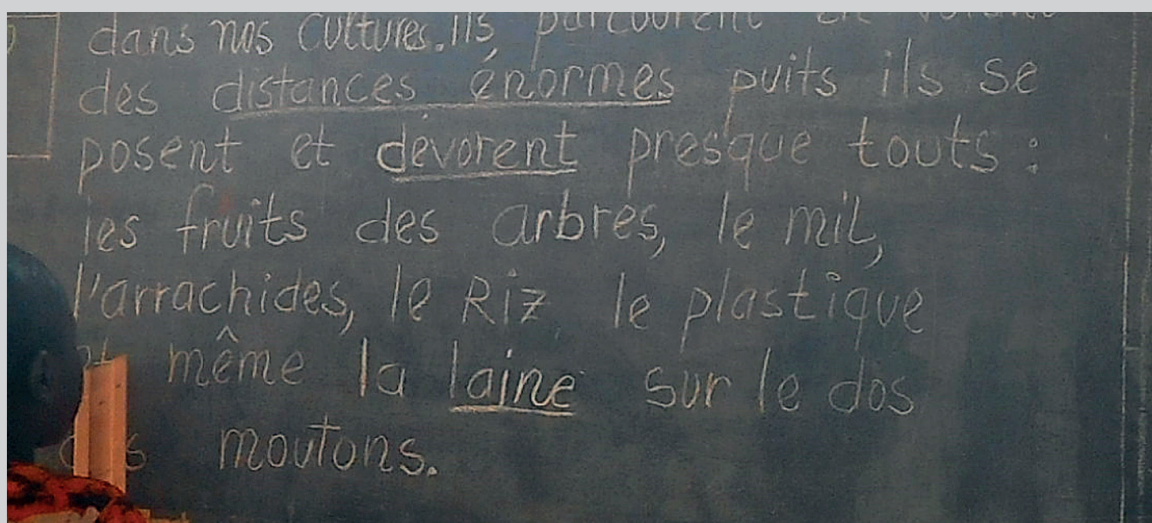 dans nos cultures. ils parcourent en volant
des distances énormes puits ils se
posent et dévorent presque touts :
les fruits des arbres, le mil,
l'arrachides, le Riz, le plastique
et même la laine sur le dos
des moutons.